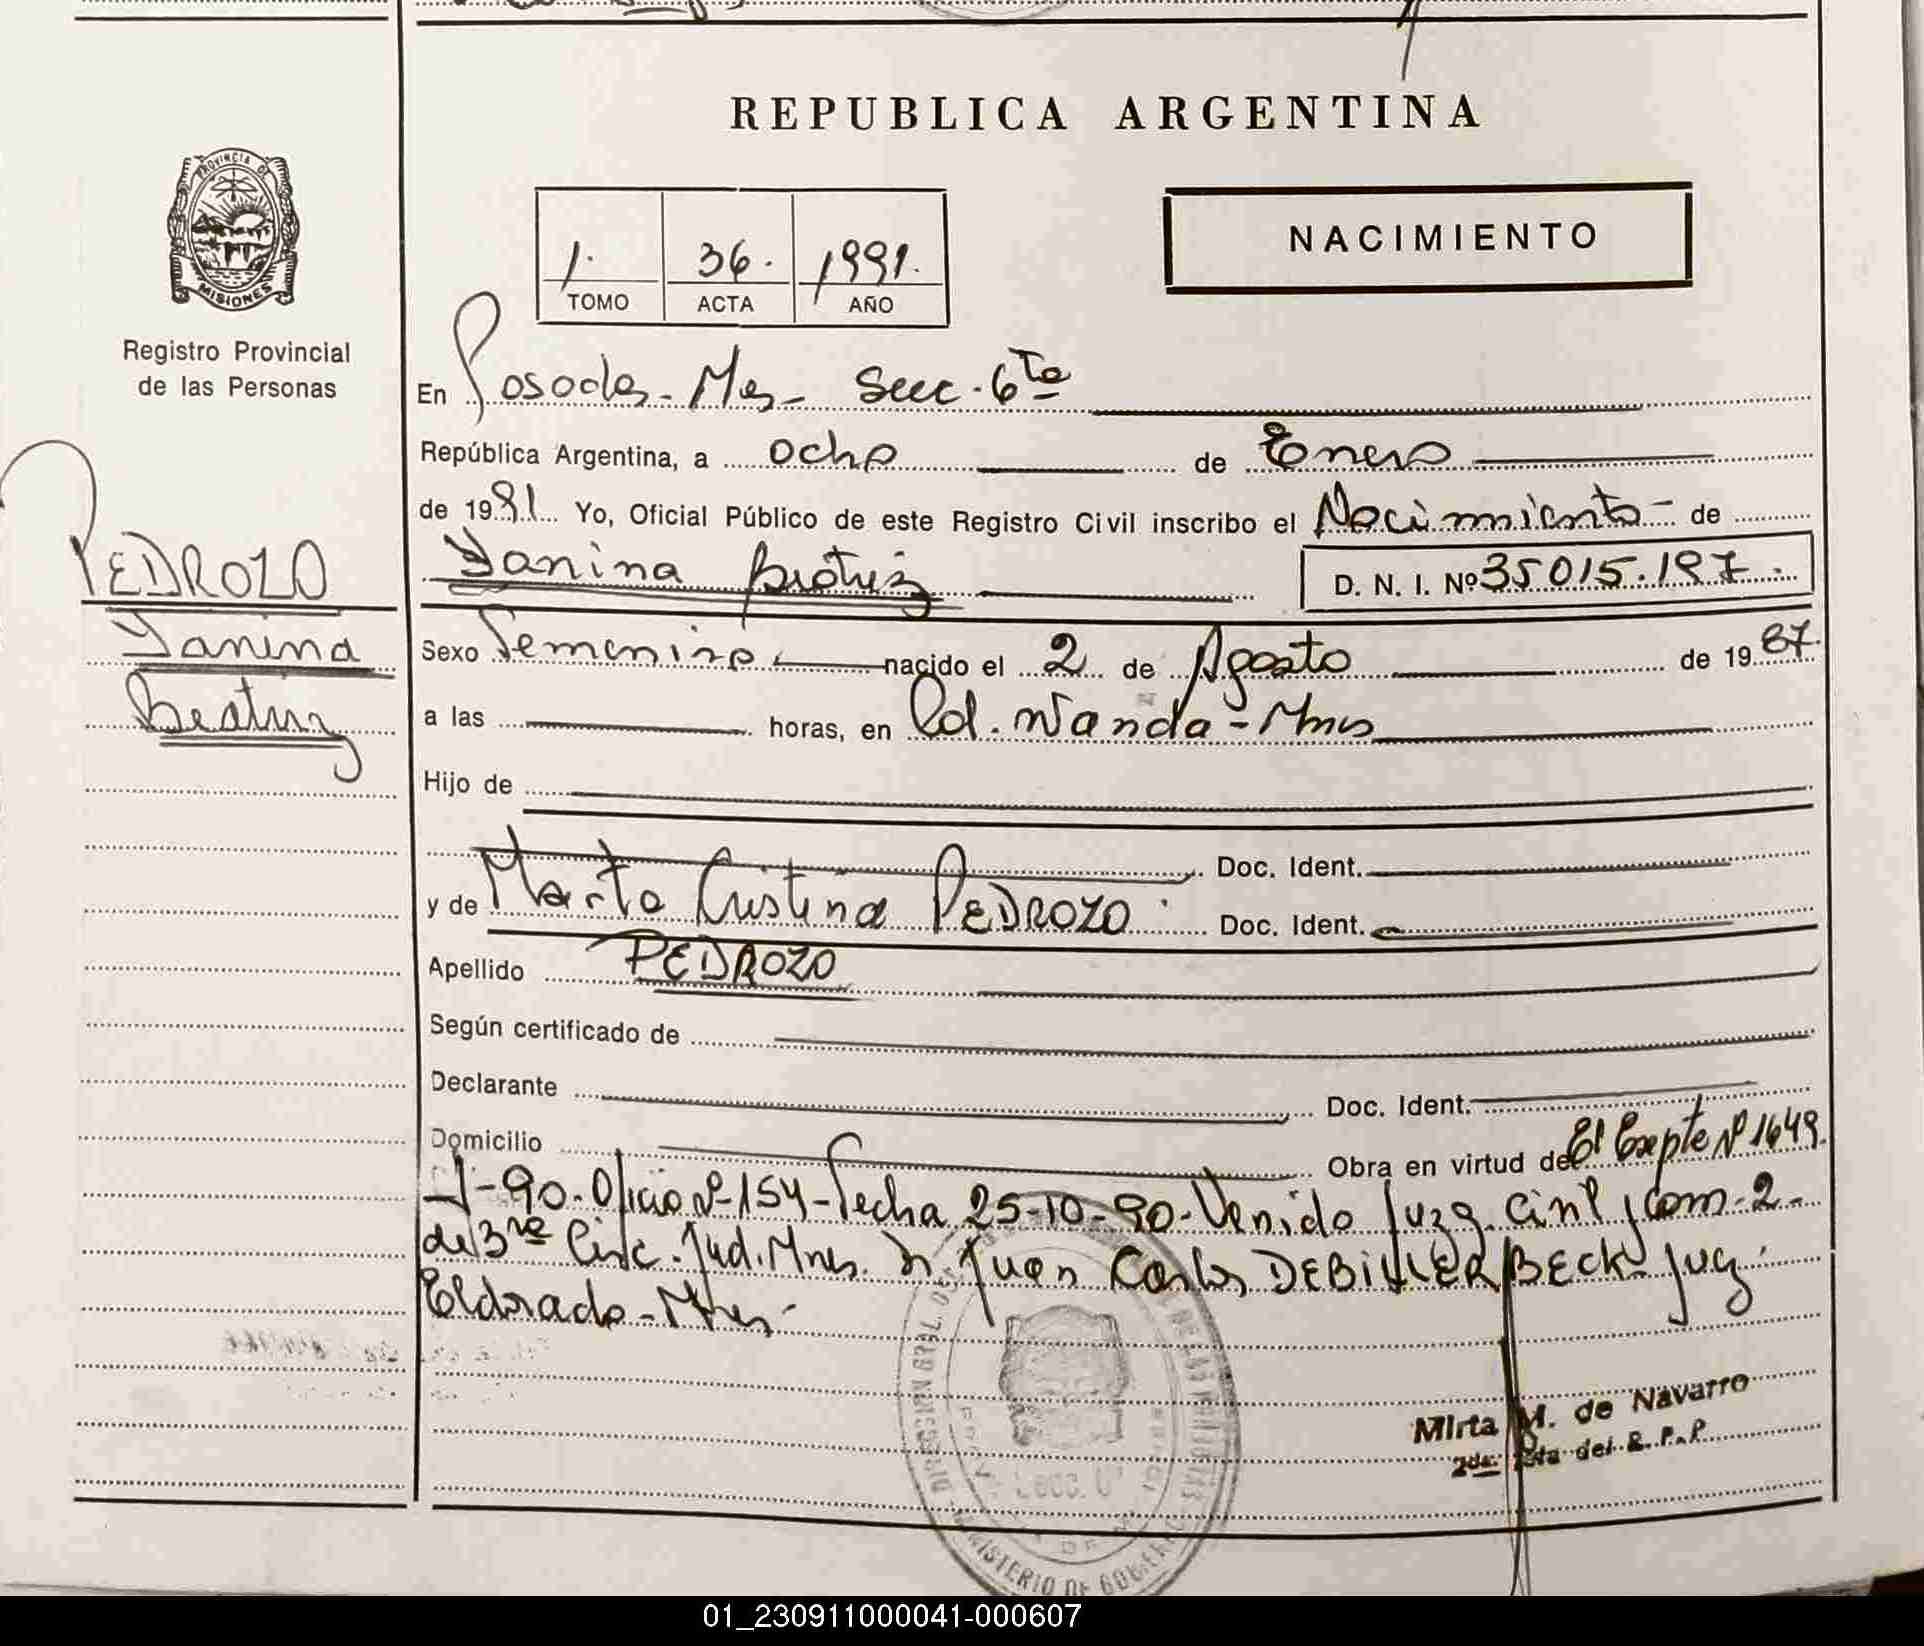 REPUBLICA ARGENTINA
PROVINCIA DE
MISIONES
Registro Provincial
de las Personas
1. 36. 1991.
TOMO ACTA AÑO
NACIMIENTO
En Posadas - Mes - Secc. 6ta
República Argentina, a ocho de Enero
de 1991 Yo, Oficial Público de este Registro Civil inscribo el Nacimiento - de
PEDROZO
Yanina
Beatriz
Yanina Beatriz D. N. I. Nº 35015.197.
Sexo Femenino nacido el 2 de Agosto de 1987.
a las horas, en Col. Wanda - Mnes
Hijo de
Doc. Ident.
y de Marta Cristina PEDROZO. Doc. Ident.
Apellido PEDROZO
Según certificado de
Declarante Doc. Ident.
Domicilio Obra en virtud de El Expte Nº 1649.
-90. Oficio Nº 154 - fecha 25-10-90. Venido Juzg. Civil y Com. 2 -
de 3ra Circ. Jud. Mnes. Dr Juan Carlos DEBILLERBECK Juez
Eldorado - Mnes -
Mirta M. de Navarro
2da. del R. P. P.
MINISTERIO DE GOBIERNO
01_230911000041-000607